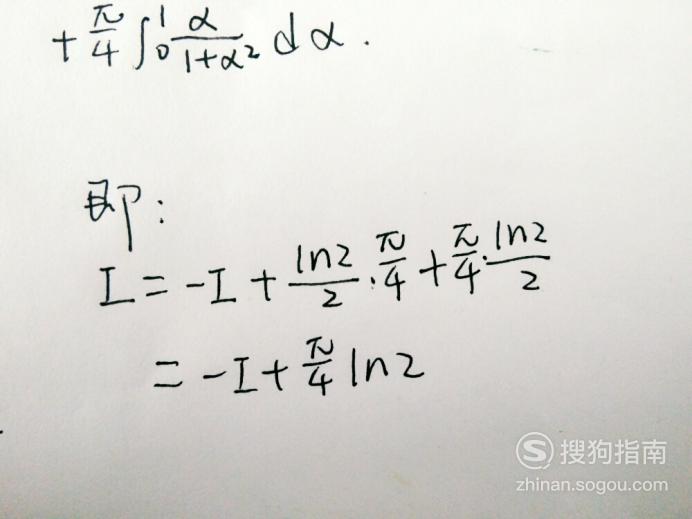 + π/4 ∫₀¹ α/(1+α²) dα.
即:
I = -I + ln2/2 · π/4 + π/4 · ln2/2
= -I + π/4 ln2
S 搜狗指南
zhinan.sogou.com